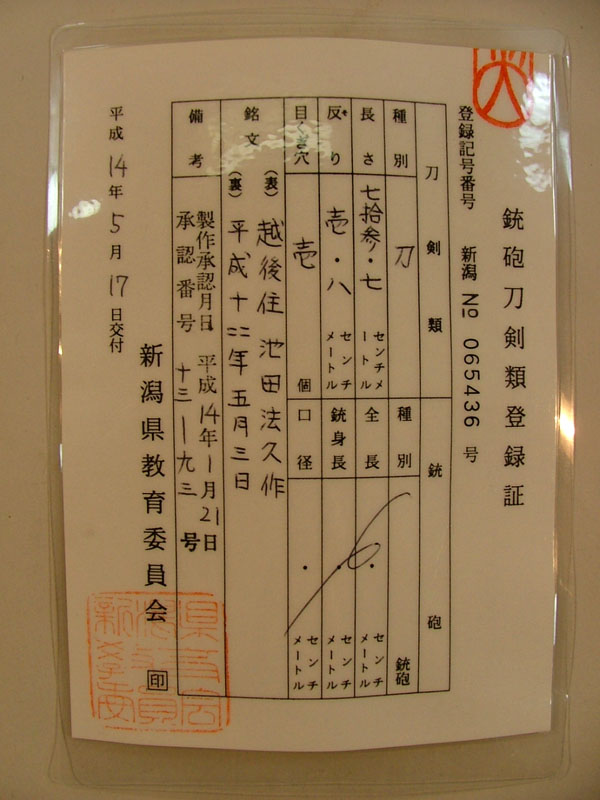 銃砲刀剣類登録証
登録記号番号 新潟 № 065436 号
刀剣類
種別 刀
長さ 七拾参・七 センチメートル
反り 壱・八 センチメートル
目くぎ穴 壱 個
銃砲
種別 銃砲
全長 ・ センチメートル
銃身長 ・ センチメートル
口径 ・ センチメートル
銘文 (表) 越後住 池田法久作
(裏) 平成十二年五月三日
備考 製作承認月日 平成14年1月21日
承認番号 十三一九三号
新潟県教育委員会 印
平成14年5月17日交付